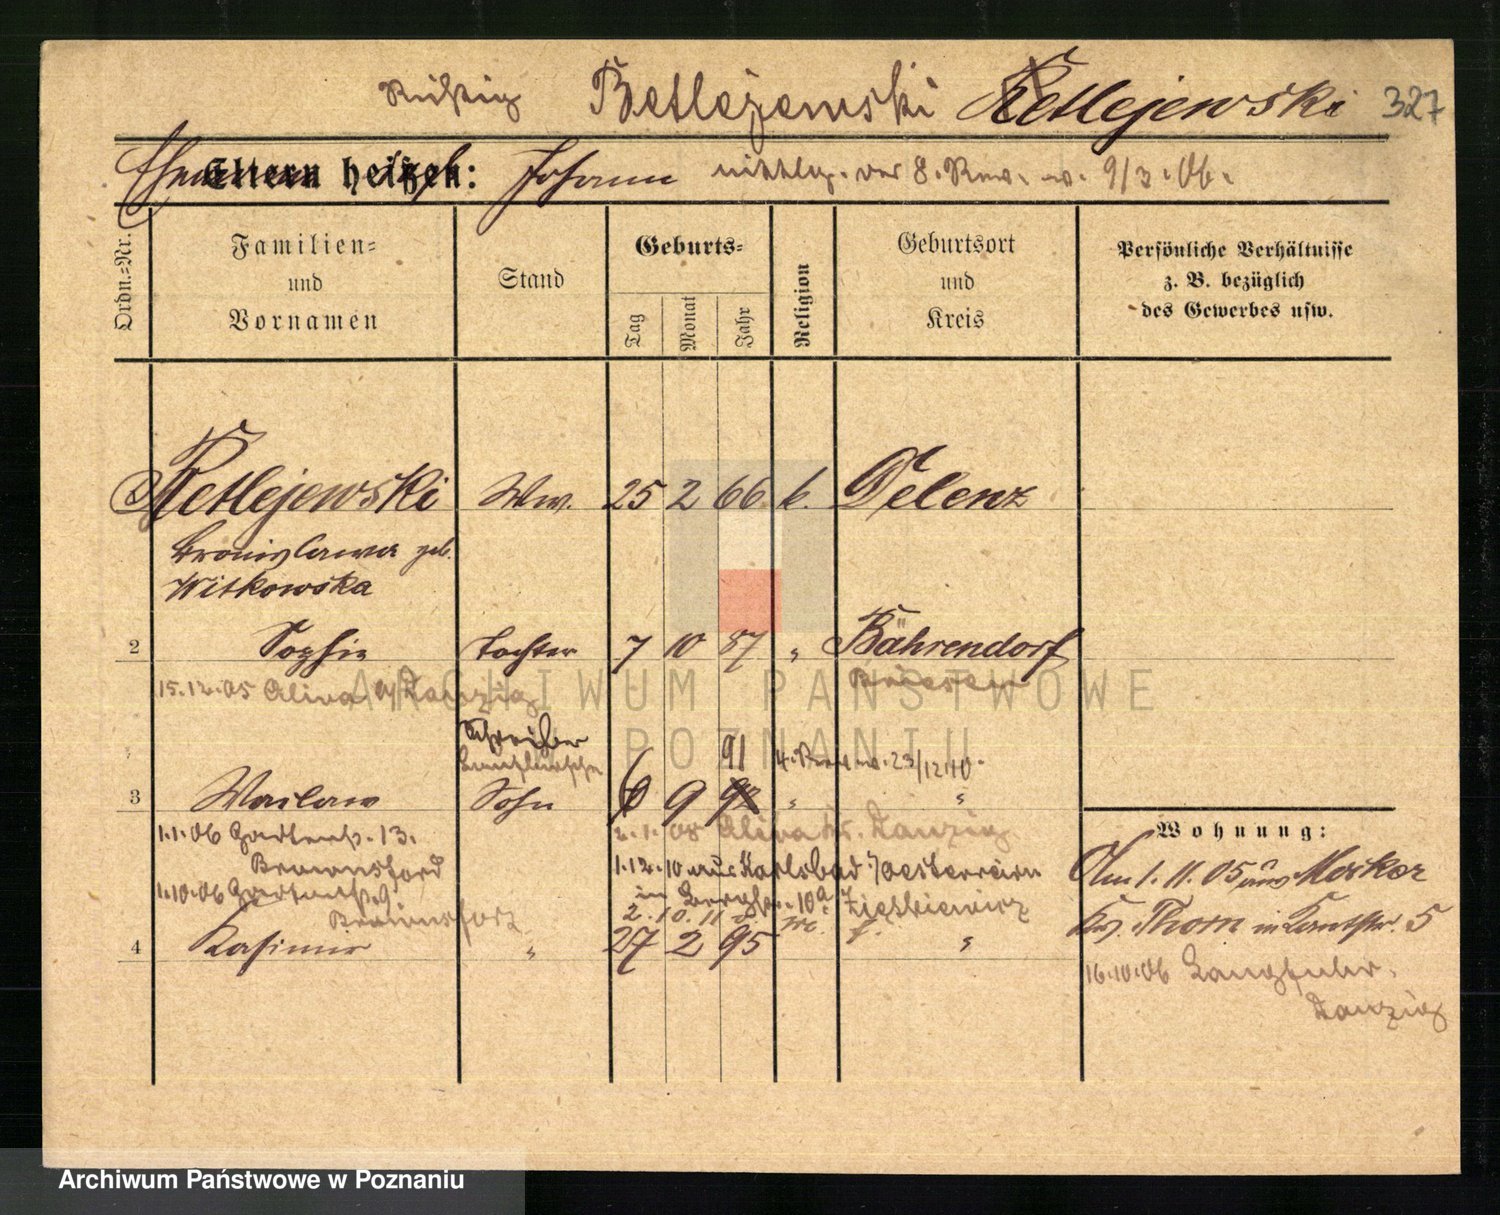 Richtig Betlezemski Retlejewski 327
Eltern heißen: Johann mittlg. der 8. Rev. v. 9/3.06.
Ordn.-Nr.
Familien-
und
Vornamen
Stand
Geburts-
Tag
Monat
Jahr
Religion
Geburtsort
und
Kreis
Persönliche Verhältnisse
z. B. bezüglich
des Gewerbes usw.
Retlejewski Ww. 25 2 66 k. Delenz
Bronislawa geb.
Witkowska
2 Sophie Tochter 7 10 87 " Bährendorf
15.12.05 Oliva Danzig Briesen
Schreiber
91 4. Rev. v. 23/12 10.
3 Waclaw Sohn 6 9 92 " "
1.1.06 Gartenstr. 13.
Braunsford
2.1.08 Oliva Kr. Danzig
1.12.10 aus Karlsbad /Oesterreich
1.10.06 Gartenstr. 9
in 10a
2.10.11
4 Kasimir " 27 2 95 "
Wohnung:
Am 1.11.05 aus Mocker
Kr. Thorn in 5
16.10.06 Langfuhr.
Danzig
ARCHIWUM PAŃSTWOWE
POZNANIU
Archiwum Państwowe w Poznaniu